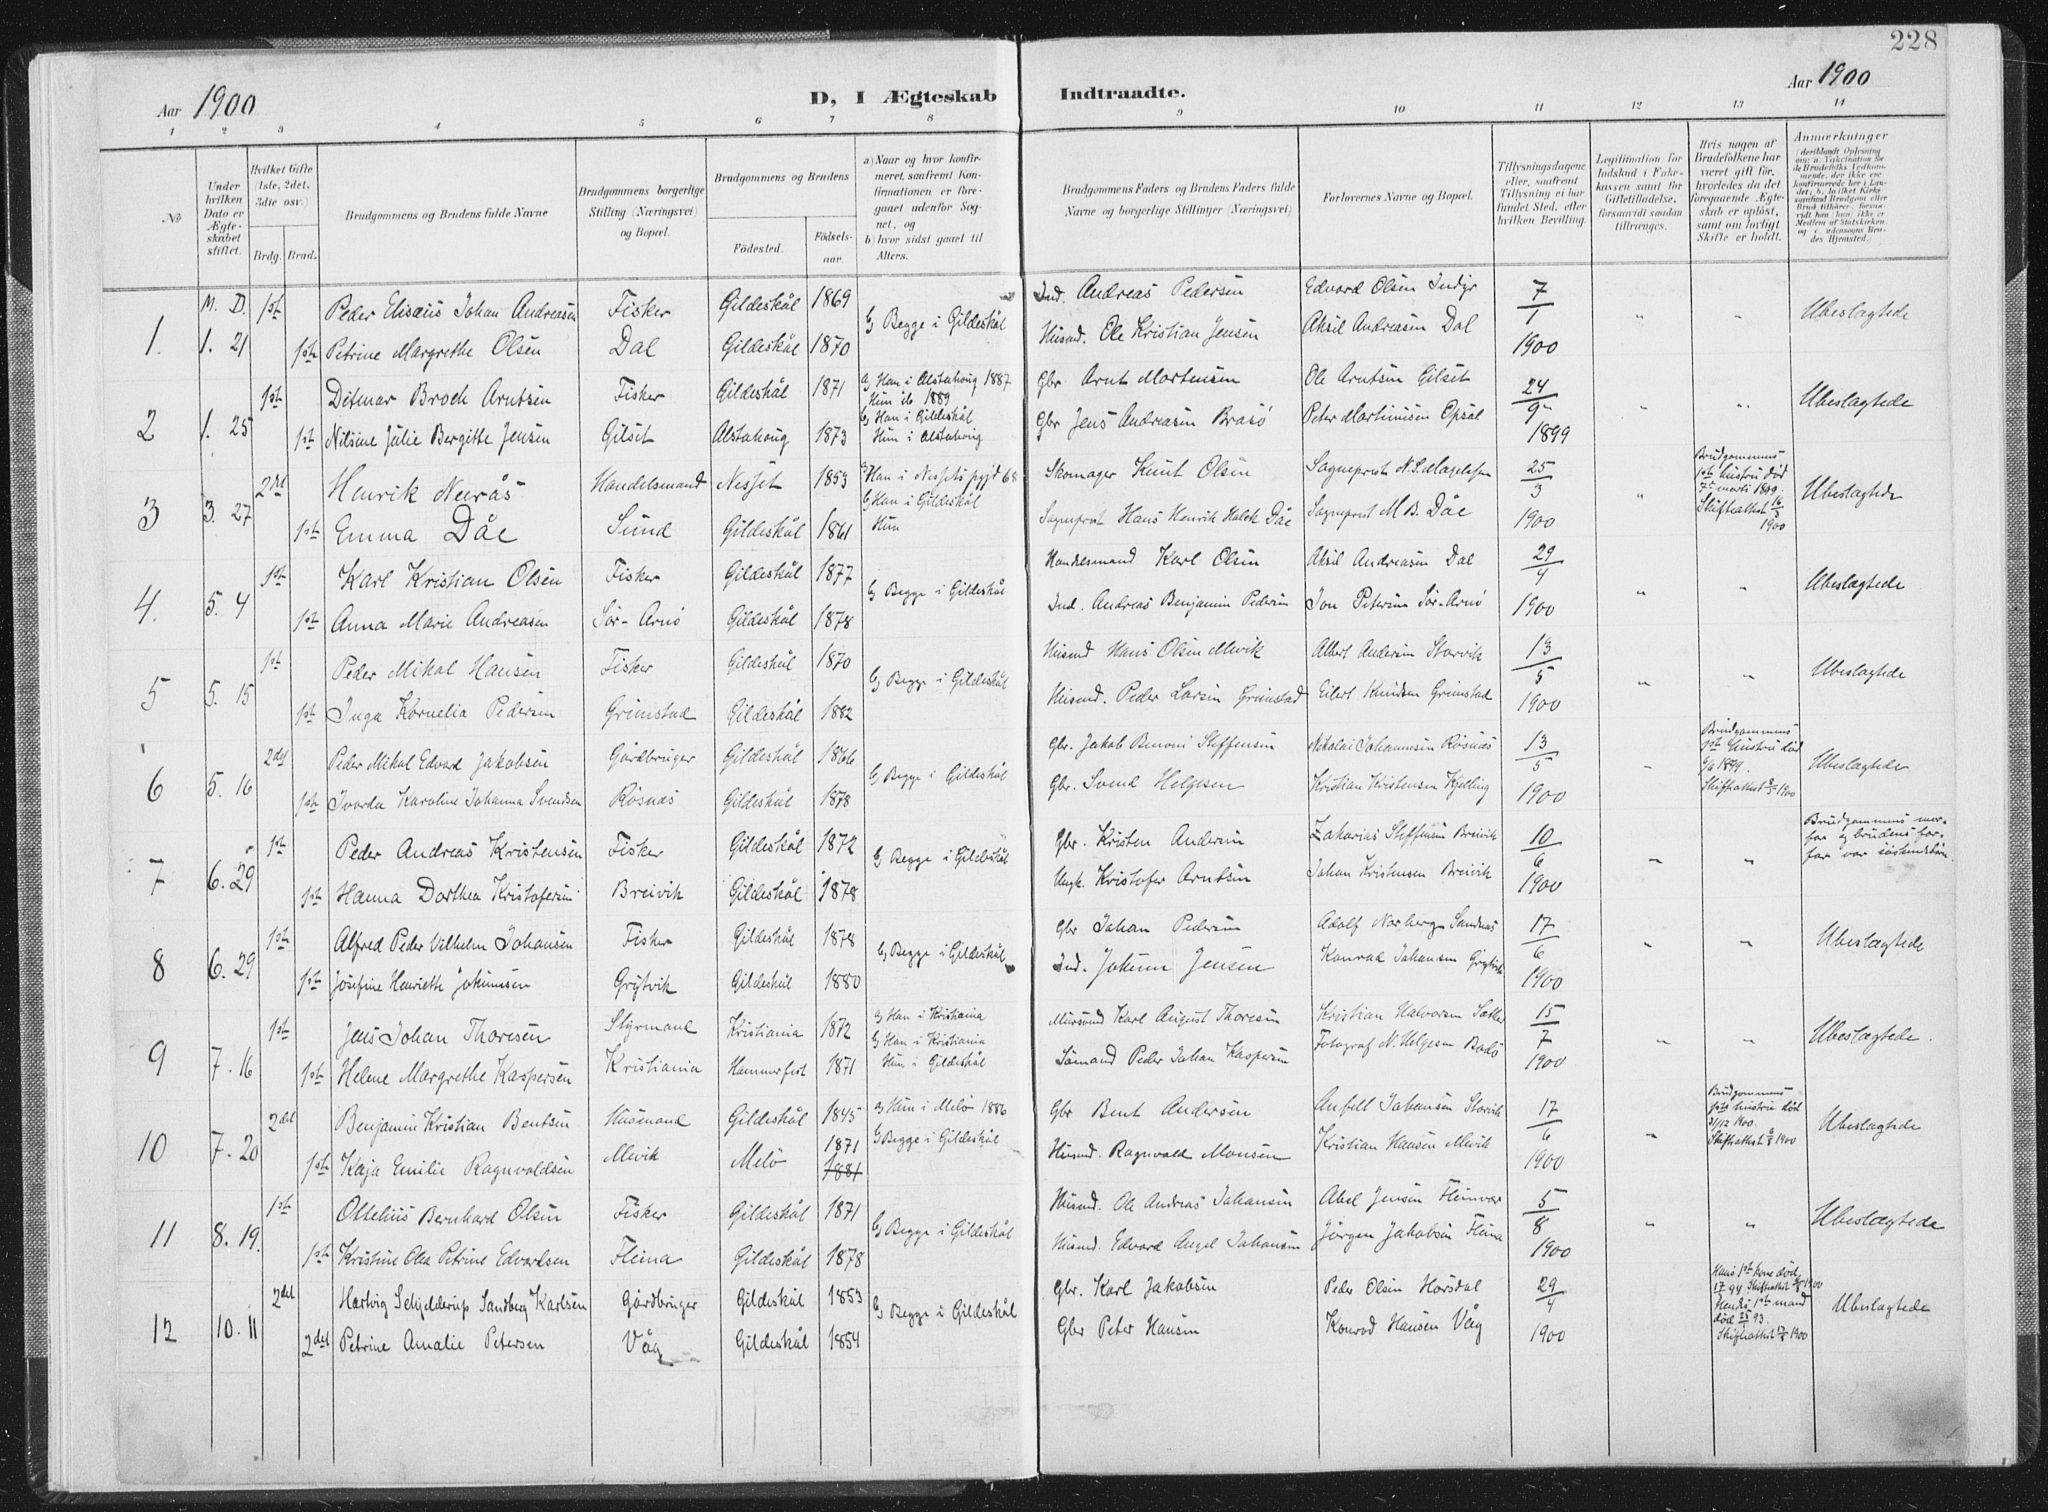 228
Aar 1900
D, I Ægteskab Indtraadte.
Aar 1900
1 2 3 4 5 6 7 8 9 10 11 12 13 14
No
Under hvilken Dato er Ægteskabet stiftet.
Hvilket Gifte (1ste, 2det, 3die osv.)
Brdg. Brud.
Brudgommens og Brudens fulde Navne
Brudgommens borgerlige Stilling (Næringsvei) og Bopæl.
Brudgommens og Brudens
Fødested.
Fødselsaar.
a) Naar og hvor konfirmeret, saafremt Konfirmationen er foregaaet udenfor Sognet, og
b) hvor sidst gaaet til Alters.
Brudgommens Faders og Brudens Faders fulde Navne og borgerlige Stillinger (Næringsvei)
Forlovernes Navne og Bopæl.
Tillysningsdagene eller, saafremt Tillysning ei har fundet Sted, efter hvilken Bevilling.
Legitimation for Indskud i Enkekassen samt for Giftetilladelse, forsaavidt saadan tiltrænges.
Hvis nogen af Brudefolkene har været gift før, hvorledes da det foregaaende Ægteskab er opløst, samt om lovligt Skifte er holdt.
Anmærkninger
M. D.
1. 1. 21 1ste Peder Elisæus Johan Andreasen Fisker Gildeskål 1869 b) Begge i Gildeskål Ind. Andreas Pedersen Edvard Olsen Indyr 7/1 1900 " " Ubeslægtede
1ste Petrine Margrethe Olsen Dal Gildeskål 1870 Husmd. Ole Kristian Jensen Aksil Andreasen Dal
2 1. 25 1ste Ditmar Broch Arntsen Fisker Gildeskål 1871 a) Han i Alstahoug 1887 Hun ib 1889 Gbr. Arnt Mortensen Ole Arntsen Gilset 24/9 1899 " " Ubeslægtede
1ste Nilsine Julie Bergitte Jensen Gilset Alstahoug 1873 b) Han i Gildeskål Hun i Alstahoug Gbr Jens Andreasen Brasø Peter Martinusen Opsal
3 3. 27 2det Henrik Neerås Handelsmand Nesset 1853 a) Han i Nessets pgjd 68 Skomager Knut Olsen Sogneprest 25/3 1900 " Brudgommens 1ste hustru død 7de marts 1899. Skifteattest 16/3 1900 Ubeslægtede
1ste Emma Dåe Sund Gildeskål 1861 b) Han i Gildeskål Hun Sogneprest Hans Henrik Holck Dåe Sogneprest M B. Dåe
4. 5. 4 1ste Karl Kristian Olsen Fisker Gildeskål 1877 b) Begge i Gildeskål Handelsmand Karl Olsen Aksil Andreasen Dal 29/4 1900 " " Ubeslægtede
1ste Anna Marie Andreasen Sør-Arnø Gildeskål 1878 Ind. Andreas Benjamin Pedersen Jon Petersen Sør-Arnø
5 5. 15 1ste Peder Mikal Hansen Fisker Gildeskål 1870 b) Begge i Gildeskål Husmd Hans Olsen Mevik Albert Andersen Storvik 13/5 1900 " " Ubeslægtede
1ste Inga Kornelia Pedersen Grimstad Gildeskål 1882 Husmd. Peder Larsen Grimstad Eilert Knudsen Grimstad
6 5. 16 2det Peder Mikal Edvard Jakobsen Gårdbruger Gildeskål 1866 b) Begge i Gildeskål Gbr. Jakob Benoni Steffensen Nikolai Johannesen Røsnæs 13/5 1900 " Brudgommens 1ste hustru død 1899. Skifteattest 1900 Ubeslægtede
1ste Ivarda Karoline Johanna Svendsen Røsnæs Gildeskål 1878 Gbr. Svend Helgesen Kristian Kristensen Kjelling
7 6. 29 1ste Peder Andreas Kristensen Fisker Gildeskål 1872 b) Begge i Gildeskål Gbr. Kristen Andersen Zakarias Steffensen Breivik 10/6 1900 " " Brudgommens morfar og brudens farfar var søskendebørn.
1ste Hanna Dorthea Kristofersen Breivik Gildeskål 1878 Ungk. Kristofer Arntsen Johan Kristensen Breivik
8 6. 29 1ste Alfred Peder Vilhelm Johansen Fisker Gildeskål 1878 b) Begge i Gildeskål Gbr Johan Pedersen Adolf Norberg Sandnæs 17/6 1900 " " Ubeslægtede
1ste Josefine Henriette Johannesen Grytvik Gildeskål 1880 Ind. Johann Jensen Konrad Johansen Grytvik
9 7. 16 1ste Jens Johan Thoresen Styrmand Kristiania 1872 a) Han i Kristiania Mursvend Karl August Thoresen Kristian Halvorsen Sæther 15/7 1900 " " Ubeslægtede.
1ste Helene Margrethe Kaspersen Kristiania Hammerfest 1871 b) Han i Kristiania Hun i Gildeskål Sømand Peder Johan Kaspersen Fotograf N. Helgesen Bodø
10 7. 20 2det Benjamin Kristian Bentsen Husmand Gildeskål 1845 a) Hun i Melø 1886 Gbr Bent Andersen Anfelt Johansen Storvik 17/6 1900 " Brudgommens 1ste hustru død 21/12 1900. Skifteattest 1900 Ubeslægtede
1ste Kaja Emilie Ragnvaldsen Mevik Melø 1871 1881 b) Begge i Gildeskål Husmd. Ragnvald Monsen Kristian Hansen Mevik
11 8. 19. 1ste Ottelius Bernhard Olsen Fisker Gildeskål 1871 b) Begge i Gildeskål Husmd. Ole Andreas Johansen Abel Jensen Fleinvær 5/8 1900 " " Ubeslægtede
1ste Kristine Olea Petrine Edvardsen Fleina Gildeskål 1878 Husmd. Edvard Angel Johansen Jørgen Jakobsen Fleina
12 10. 11 2det Hartvig Schjelderup Sandberg Karlsen Gårdbruger Gildeskål 1853 b) Begge i Gildeskål Gbr. Karl Jakobsen Peder Olsen Horsdal 29/4 1900 Hans 1ste kone død 94 Skifteattest 1900 Hendes 1ste mand død 93. Skifteattest 1900 Ubeslægtede
2det Petrine Amalie Petersen Våg Gildeskål 1854 Gbr Peter Hansen Konrad Hansen Våg